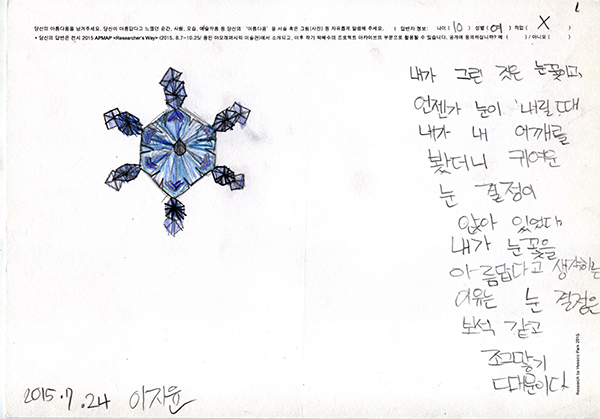 당신의 아름다움을 남겨주세요. 당신이 아름답다고 느꼈던 순간, 사람, 모습, 예술작품 등 당신의 "아름다움"을 서술 혹은 그림(사진) 등 자유롭게 알려주세요. ( 답변자 정보: 나이 ( 10 ) 성별 ( 여 ) 직업 ( X )
* 당신의 답변은 전시 2015 APMAP <Researcher's Way> (2015. 8.7~10.25/ 용인 아모레퍼시픽 미술관)에서 소개되고, 이후 작가 박혜수의 프로젝트 아카이브의 부분으로 활용될 수 있습니다. 공개에 동의하십니까? 예 ( ) / 아니오 ( )
내가 그린 것은 눈꽃이고,
언젠가 눈이 내릴 때
내가 내 어깨를
봤더니 귀여운
눈 결정이
앉아 있었다.
내가 눈꽃을
아름답다고 생각하는
이유는 눈 결정은
보석 같고
조그맣기
때문이다.
2015.7.24 이자윤
Research by Hyesoo Park 2015